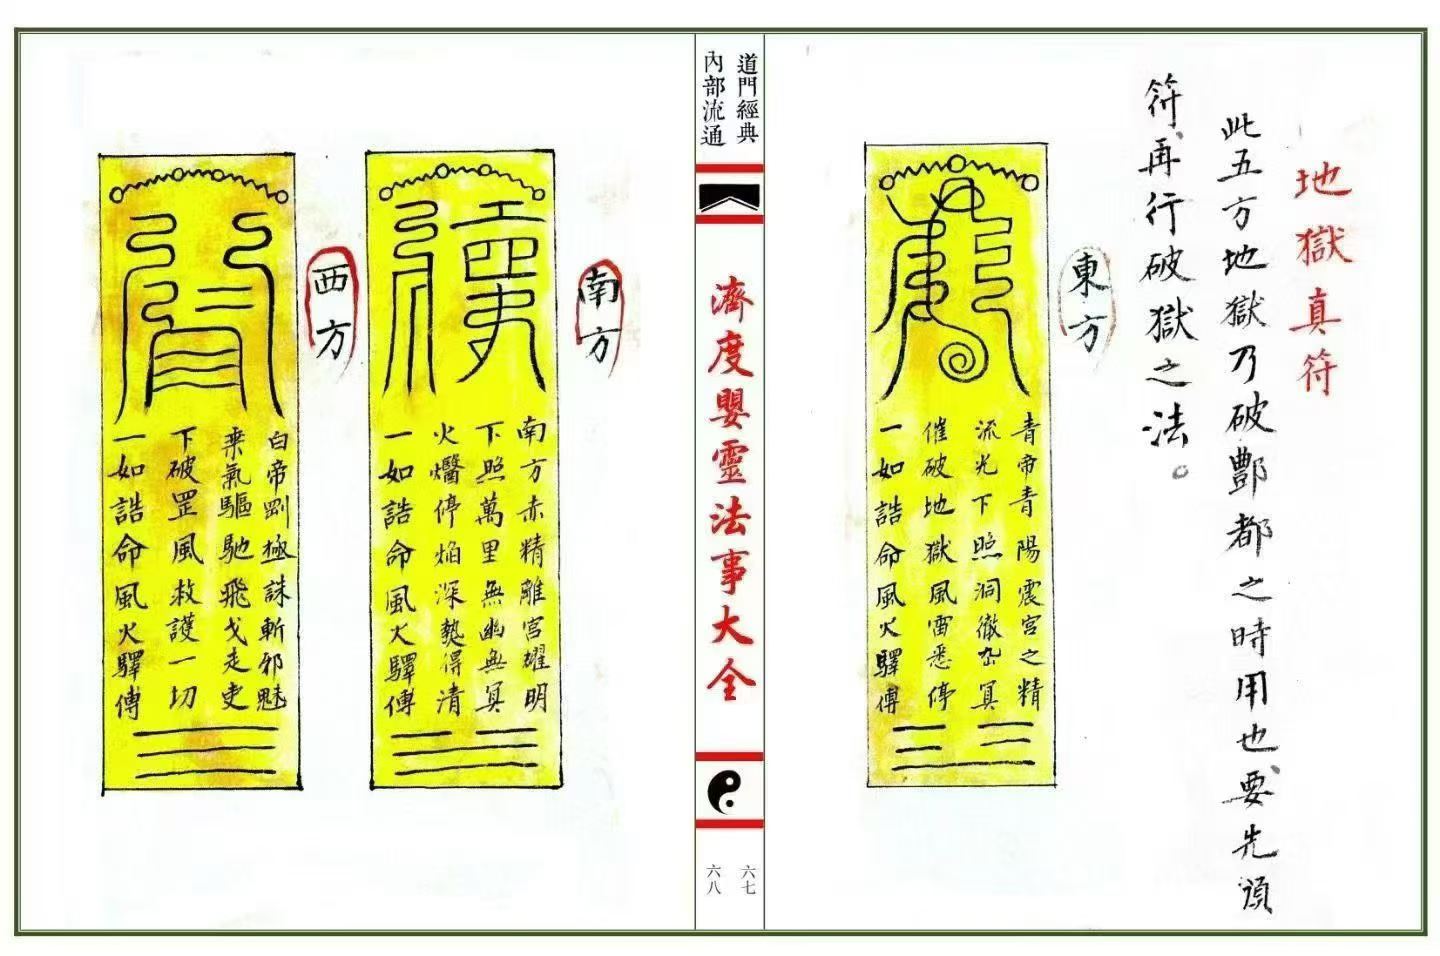 地獄真符
此五方地獄乃破酆都之時用也、要先頒
符、再行破獄之法。
東方
青帝青陽震宮之精
流光下照洞徹冥
催破地獄風雷悉停
一如誥命風火驛傳
道門經典
內部流通
濟度嬰靈法事大全
六七
六八
南方
南方赤精離宮耀明
下照萬里無幽無冥
火醫停焰深熱得清
一如誥命風火驛傳
西方
白帝剛極誅斬邪魅
乘氣驅馳飛戈走吏
下破罡風救護一切
一如誥命風火驛傳